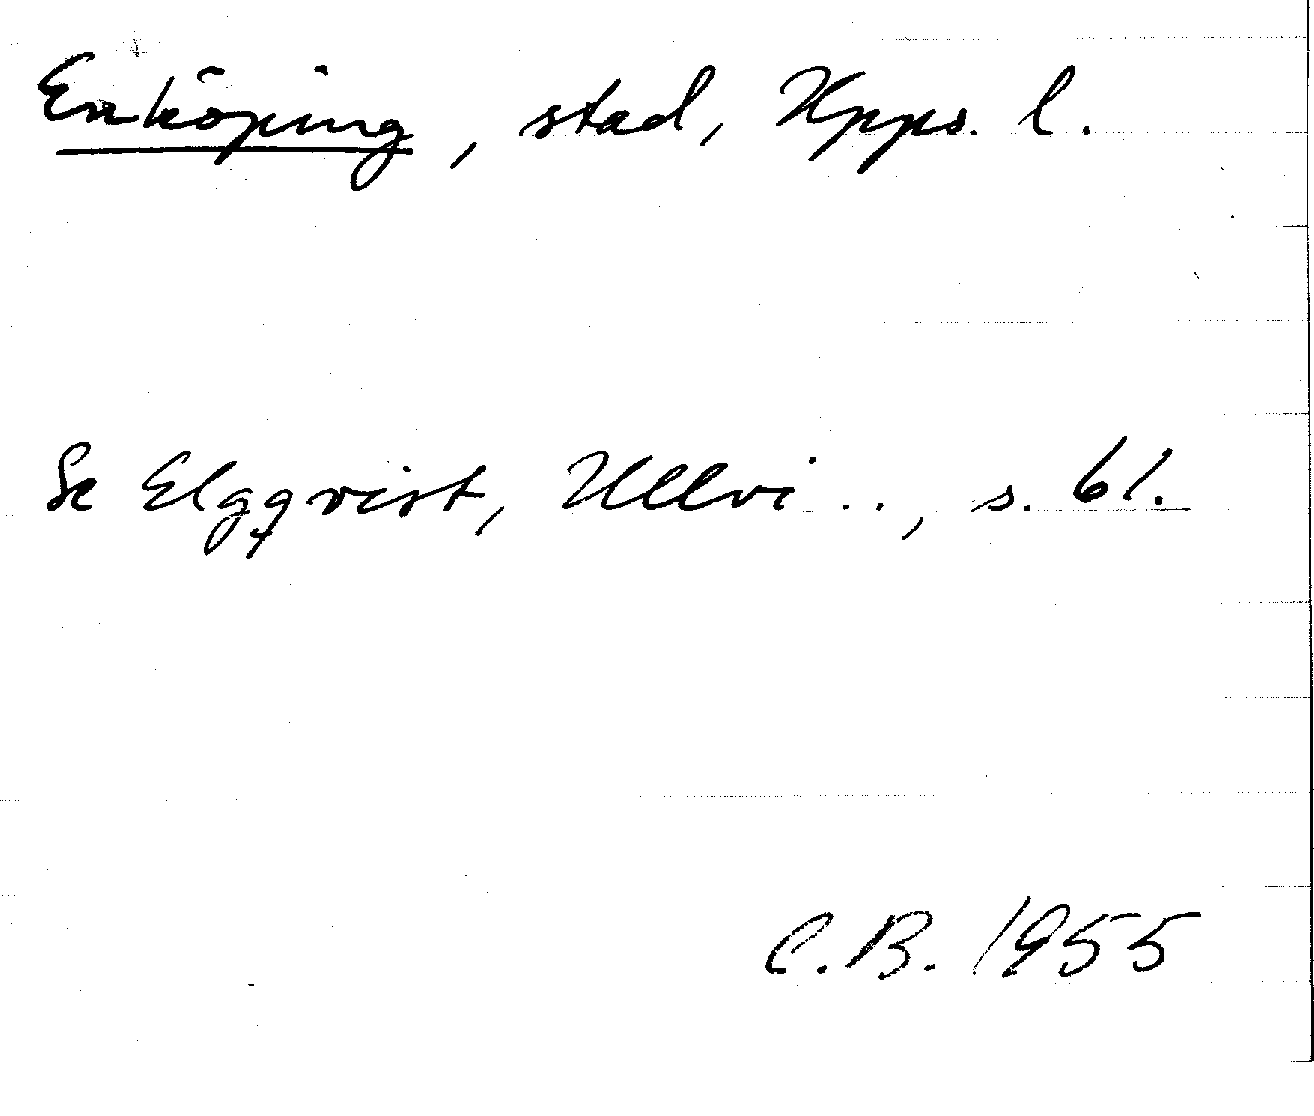 Enköping, stad, Upps. l.
Se Elgqvist, Ullvi . . , s. 61.
C.B. 1955